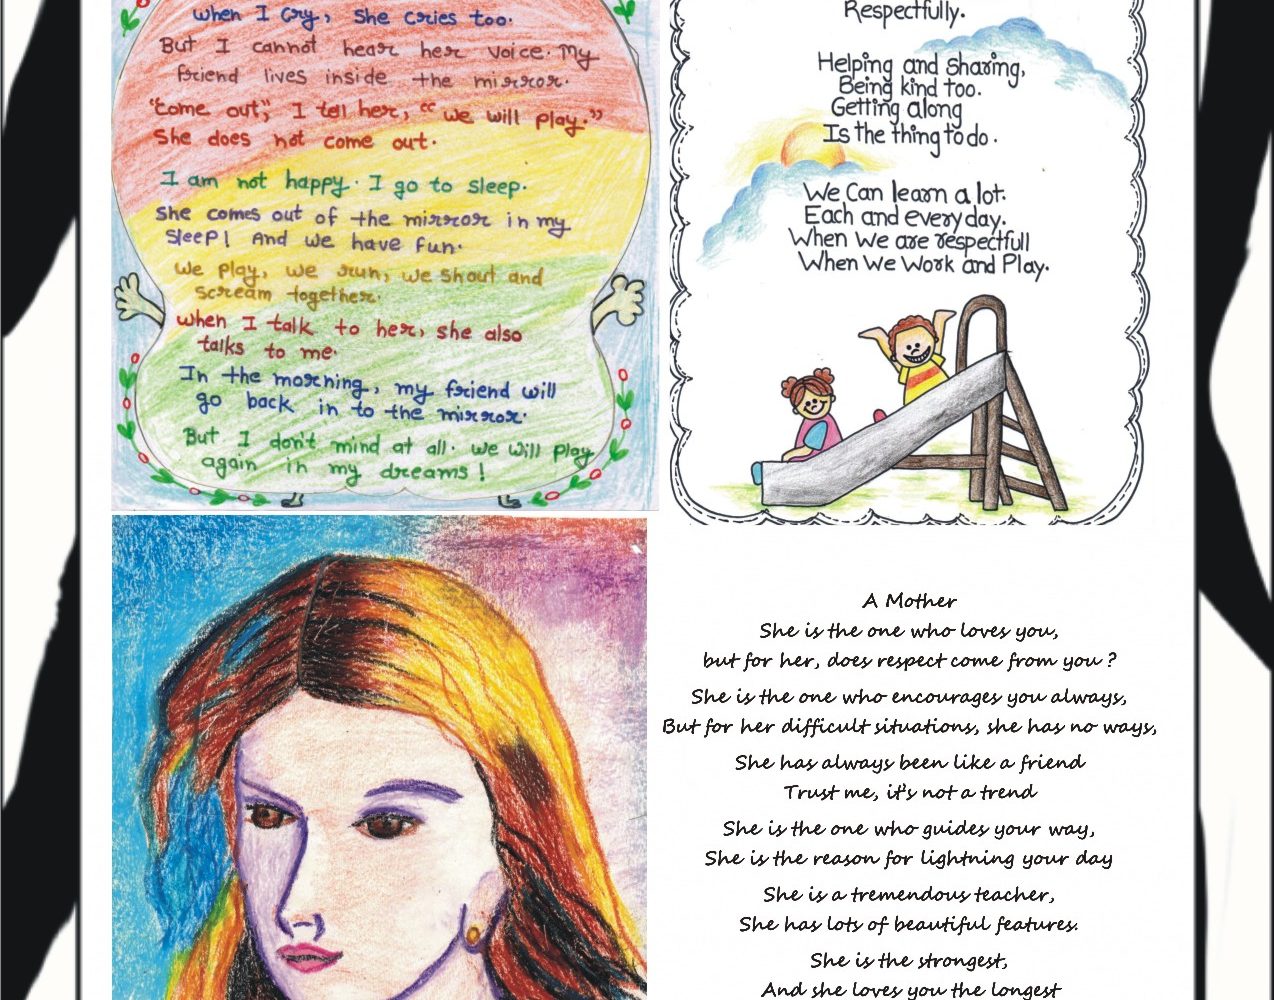 when I cry, she cries too.
But I cannot hear her voice. My
friend lives inside the mirror.
"come out", I tell her, "we will play."
She does not come out.
I am not happy. I go to sleep.
She comes out of the mirror in my
sleep! And we have fun.
we play, we run, we shout and
scream together.
when I talk to her, she also
talks to me.
In the morning, my friend will
go back in to the mirror.
But I don't mind at all. we will play
again in my dreams!
Respectfully.
Helping and sharing,
Being kind too.
Getting along
Is the thing to do.
We Can learn a lot.
Each and every day.
When We are respectfull
When We Work and Play.
A Mother
She is the one who loves you,
but for her, does respect come from you ?
She is the one who encourages you always,
But for her difficult situations, she has no ways,
She has always been like a friend
Trust me, it's not a trend
She is the one who guides your way,
She is the reason for lightning your day
She is a tremendous teacher,
She has lots of beautiful features.
She is the strongest,
And she loves you the longest